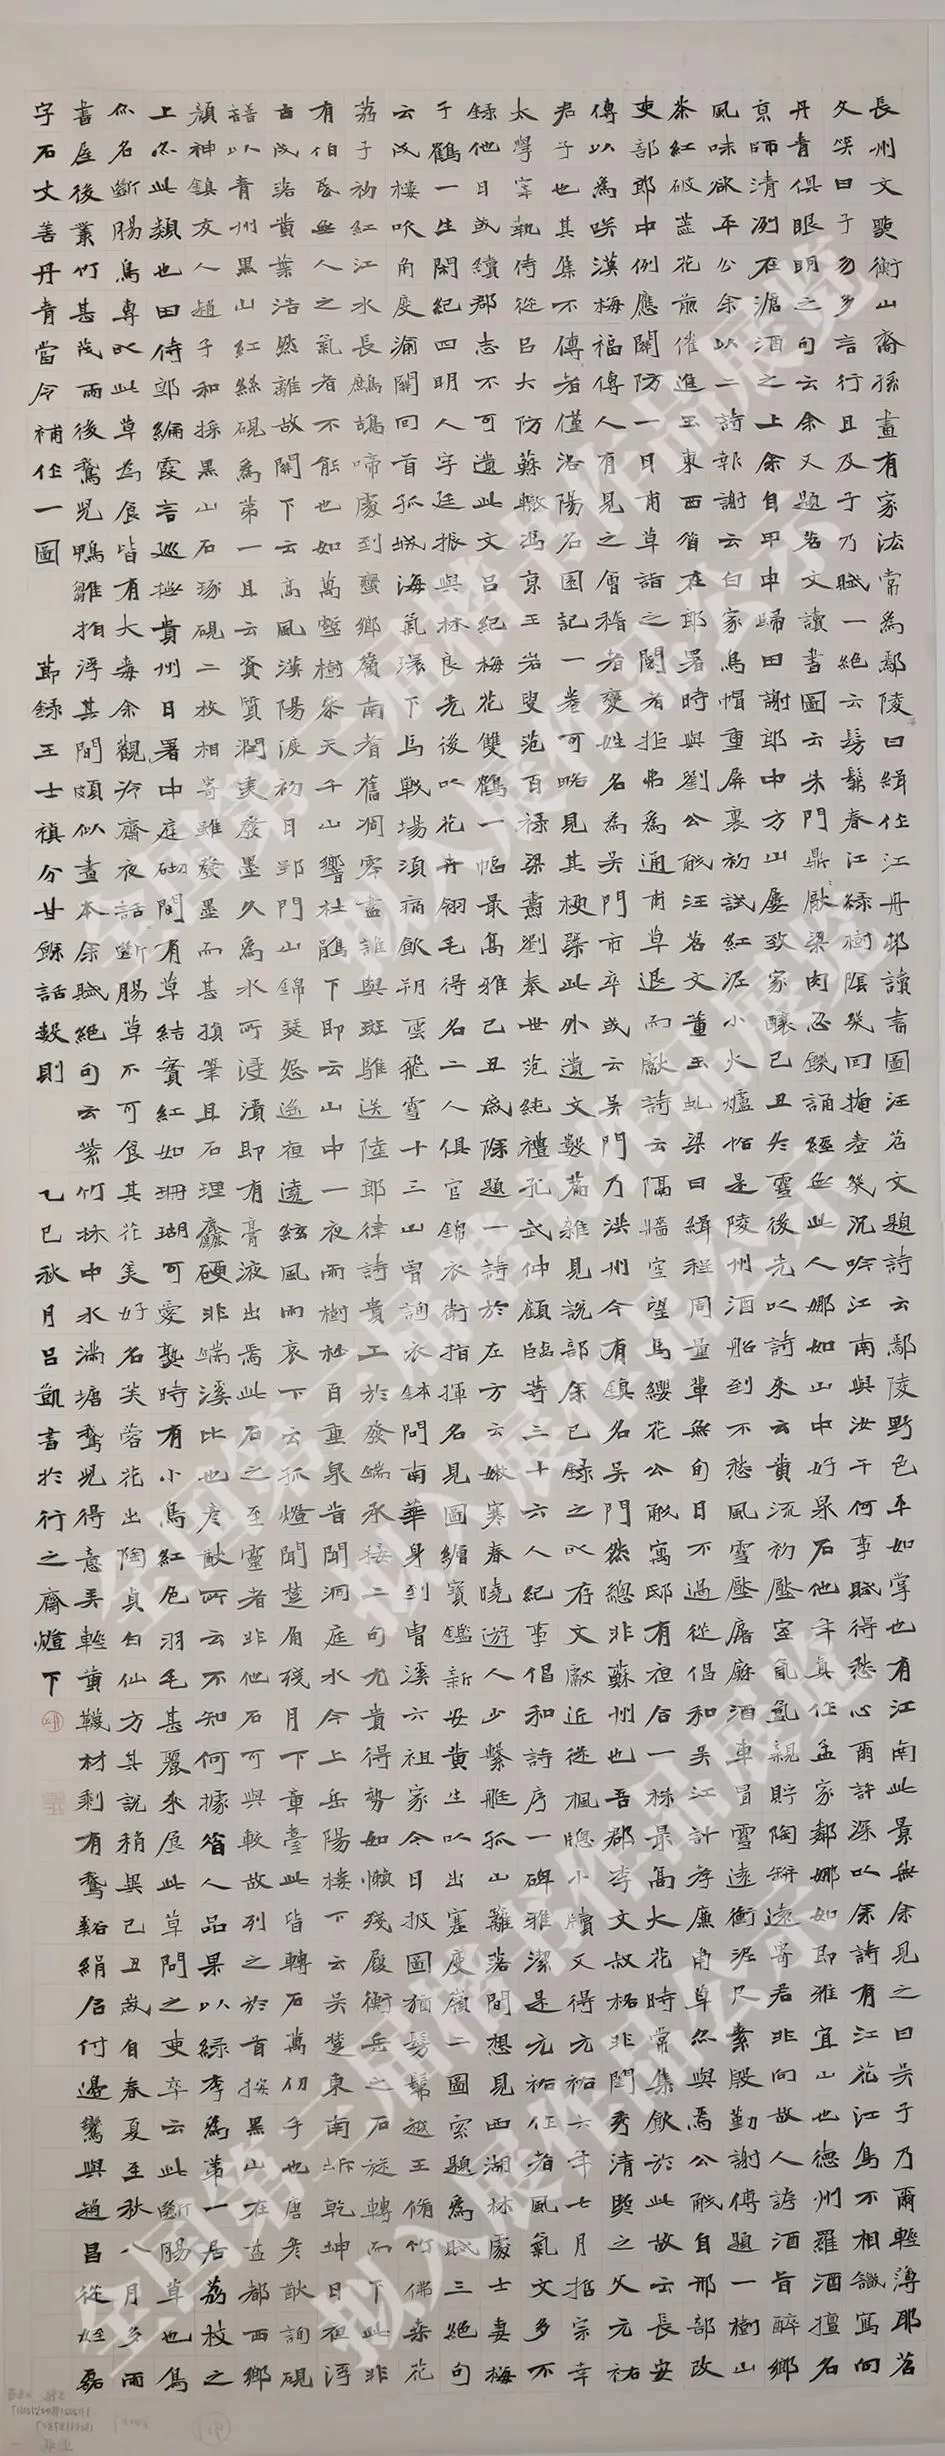 長州文奭衡山裔孫畫有家法常為鄢陵曰緝任江丹邨讀書圖汪苕文題詩云鄢陵野色平如掌也有江南此景無余見之曰吳子乃爾輕薄耶苕
文笑曰子勿多言行且及子乃賦一絕云髣髴春江綠樹陰幾回掩卷幾沉吟江南與汝干何事賦得愁心爾許深以余詩有江花江鳥不相識寫向
丹青俱眼明之句云余又題苕文讀書圖云朱門鼎厭梁肉忍饑誦經無此人娜如山中好泉石他年真任孟家鄰娜如即雅宜山也德州羅酒擅名
京師清冽在滄酒之上余自甲申歸田謝郎中方山屢致家釀己丑於雪後先以詩來云黃流初壓室氤氳親貯陶缾遠寄君非向故人誇酒旨醉鄉
風味欲平公余以二詩報謝云白家烏帽重屏裏初試紅泥小火爐恰是陵州酒船到不愁風雪壓屠蘇酒車冒雪遠衝泥尺素殷勤謝傅題一樹山
茶紅破蕋花前催進玉東西省在郎署時與劉公㦷汪苕文董玉虬梁曰緝程周量輩無旬日不過從倡和吳江計孝廉甫草忽與焉公㦷自刑部改
吏部郎中例應關防一日甫草詣之閽者拒弗為通甫草退而獻詩云隔牆空望馬纓花公㦷寓邸有夜合一株最高大花時常集飲於此故云長安
傳以為咲漢梅福傳人有見之會稽者變姓名為吳門市卒或云吳門乃洪州今有鎮名吳門然總非蘇州也吾郡李文叔格非閨秀清照之父元祐
君子也其集不傳者僅洛陽名園記一卷可略見其梗槩此外遺文數篇雜見說部余已錄之以存文獻近從楓牕小牘又得元祐六年七月哲宗幸
太學宰執侍從呂大防蘇轍馮京王岩叟范百祿梁燾劉奉世范純禮孔武仲顧臨等三十六人紀事倡和詩序一碑雅潔是元祐任者風氣文多不
錄他日或續郡志不可遺此文呂紀梅花雙鶴一幅最高雅己丑歲除題一詩於左方云嫩寒春曉遊人少繫艇孤山籬落間想見西湖林處士妻梅
子鶴一生閑紀四明人字廷振與林良先後以花卉翎毛得名二人俱官錦衣衛指揮名見圖繪寶鑑新安黃生以出塞度嶺二圖索題為賦三絕句
云戍樓吹角度渝關回首孤城海氣環下馬戰場須痛飲朔雲飛雪十三山曾詢衣鉢問南華身到曹溪六祖家今日披圖猶髣髴越王脩竹佛桑花
荔子初紅江水長鷓鴣啼處到蠻鄉嶺南耆舊凋零盡誰與斑騅送陸郎律詩貴工於發端承接二句尤貴得勢如懶殘履衡岳之石旋轉而下此非
有伯昏無人之氣者不能也如萬壑樹參天千山響杜鵑下即云山中一夜雨樹杪百重泉昔聞洞庭水今上岳陽樓下云吳楚東南坼乾坤日夜浮
古戍落黃葉浩然離故關下云高風漢陽渡初日郢門山錦瑟怨遙夜遶絃風雨哀下云孤燈聞楚角殘月下章臺此皆轉石萬仞手也唐彥猷詢硯
譜以青州黑山紅絲硯為第一且云資質潤美發墨久為水所浸漬即有膏液出焉此石之至靈者非他石可與較故列之於首按黑山在益都西鄉
顏神鎮友人趙子和採黑山石琢硯二枚相寄雖發墨而甚損筆且石理麤硬非端溪比也彥猷所云不知何據省人品果以綠李為第一居荔枝之
上亦此類也田侍郎綸霞言巡撫貴州日署中庭砌間有草結實紅如珊瑚可愛熟時有小鳥紅色羽毛甚麗來展此草問之吏卒云此斷腸草也鳥
亦名斷腸鳥專以此草為食皆有大毒余觀冷齋夜話斷腸草不可食其花美好名芙蓉花出陶貞白仙方其說稍異己丑歲自春夏至秋八月多雨
書屋後叢竹甚茂雨後鵞兒鴨雛拍浮其間頗似畫本余賦絕句云紫竹林中水滿塘鵞兒得意弄輕黃韈材剩有鵞谿絹合付邊鸞與趙昌從姪磊
字石丈善丹青當令補任一圖 節錄王士禛分甘餘話數則 乙巳秋月呂凱書於行之齋燈下
全国第三届楷书作品展览
拟入展作品公示